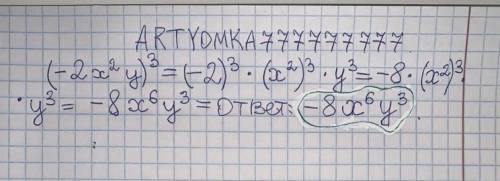 ARTYOMKA777777777
(-2x²y)³ = (-2)³ · (x²)³ · y³ = -8 · (x²)³ ·
· y³ = -8x⁶y³ = Ответ: -8x⁶y³.